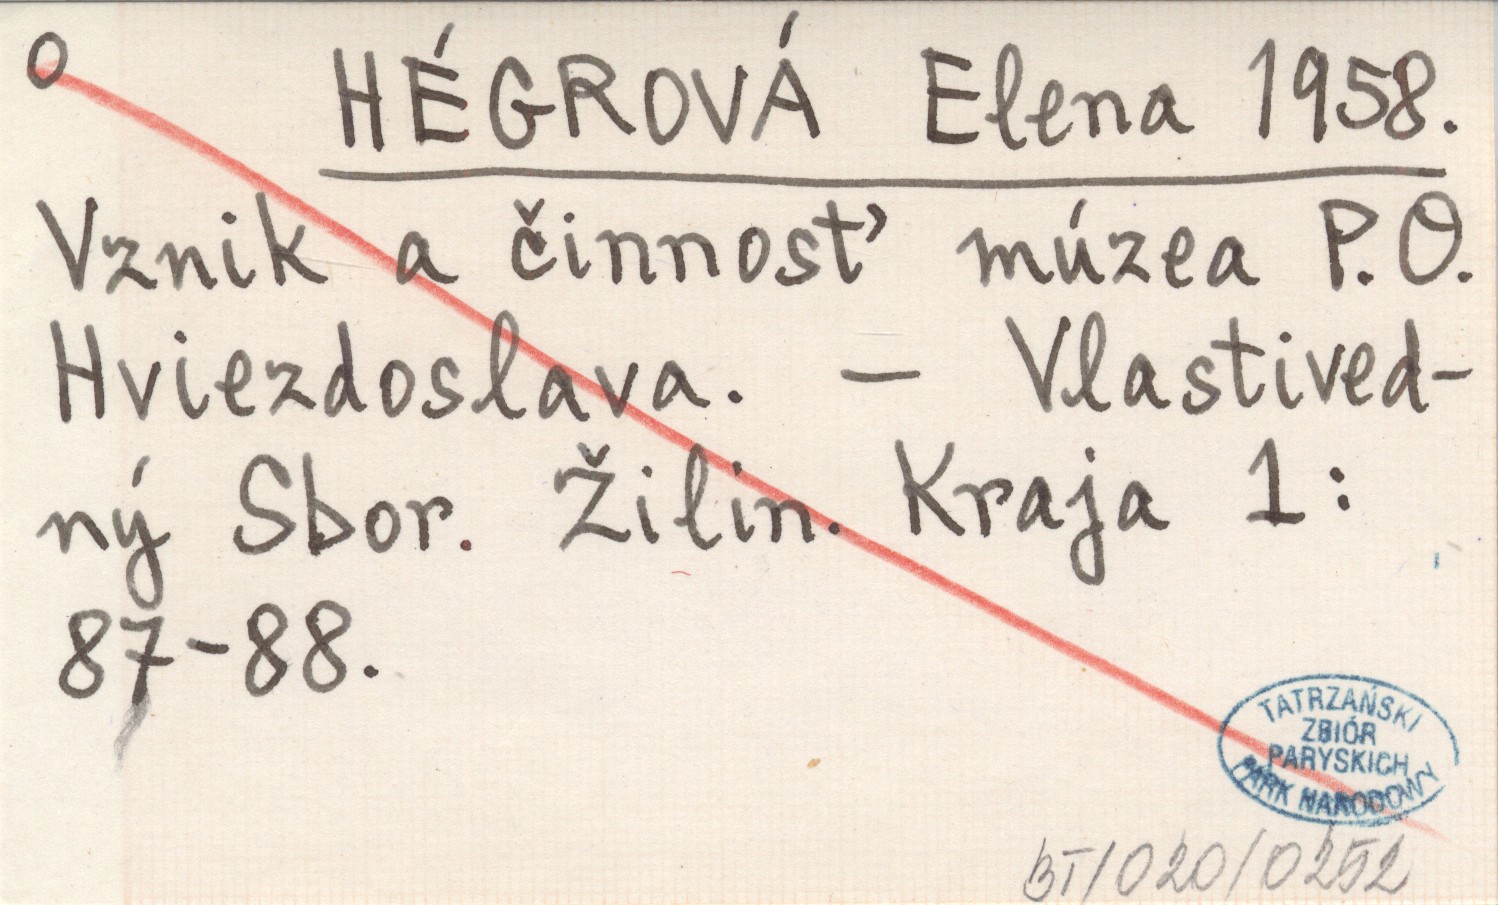 O
HÉGROVÁ Elena 1958.
Vznik a činnosť múzea P.O.
Hviezdoslava. — Vlastived-
ný Sbor. Žilin. Kraja 1:
87-88.
TATRZAŃSKI
ZBIÓR
PARYSKICH
PARK NARODOWY
BT/020/0252